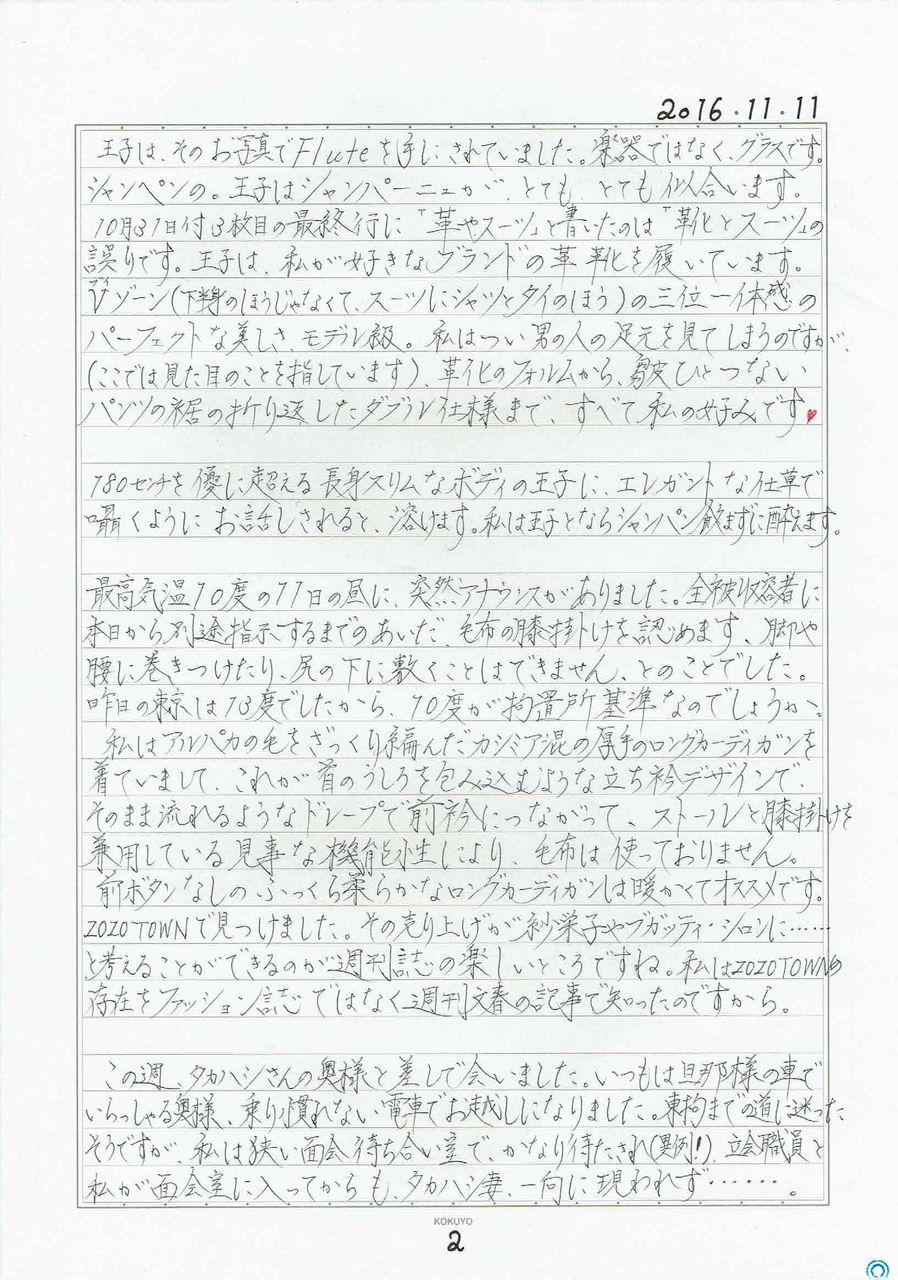 2016.11.11
王子は、そのお写真でFluteを手にされていました。楽器ではなく、グラスです。
シャンペンの。王子はシャンパーニュが、とても とても似合います。
10月31日付3枚目の最終行に「革やスーツ」と書いたのは「革靴とスーツ」の
誤りです。王子は、私が好きなブランドの革靴を履いています。
ブイ
Vゾーン(下半身のほうじゃなくて、スーツにシャツとタイのほう)の三位一体感の
パーフェクトな美しさ、モデル級。私はつい男の人の足元を見てしまうのですが、
(ここでは見た目のことを指しています)、革靴のフォルムから、皺ひとつない
パンツの裾の折り返したダブル仕様まで、すべて私の好みです♥
180センチを優に超える長身スリムなボディの王子に、エレガントな仕草で
囁くようにお話しされると、溶けます。私は王子とならシャンパン飲まずに酔えます。
最高気温10度の11日の昼に、突然アナウンスがありました。全被収容者に
本日から別途指示するまでのあいだ、毛布の膝掛けを認めます、脚や
腰に巻きつけたり、尻の下に敷くことはできません、とのことでした。
昨日の東京は13度でしたから、10度が拘置所基準なのでしょうか。
私はアルパカの毛をざっくり編んだカシミア混の厚手のロングカーディガンを
着ていまして、これが首のうしろを包み込むような立ち衿デザインで、
そのまま流れるようなドレープで前衿につながって、ストールと膝掛けを
兼用している見事な機能性により、毛布は使っておりません。
前ボタンなしのふっくら柔らかなロングカーディガンは暖かくてオススメです。
ZOZOTOWNで見つけました。その売り上げが紗栄子やブガッティ・シロンに……
と考えることができるのが週刊誌の楽しいところですね。私はZOZOTOWNの
存在をファッション誌ではなく週刊文春の記事で知ったのですから。
この週、タカハシさんの奥様と差しで会いました。いつもは旦那様の車で
いらっしゃる奥様、乗り慣れない電車でお越しになりました。東拘までの道に迷った
そうですが、私は狭い面会待ち合い室で、かなり待たされ(異例!)、立会職員と
私が面会室に入ってからも、タカハシ妻、一向に現われず……。
KOKUYO
2